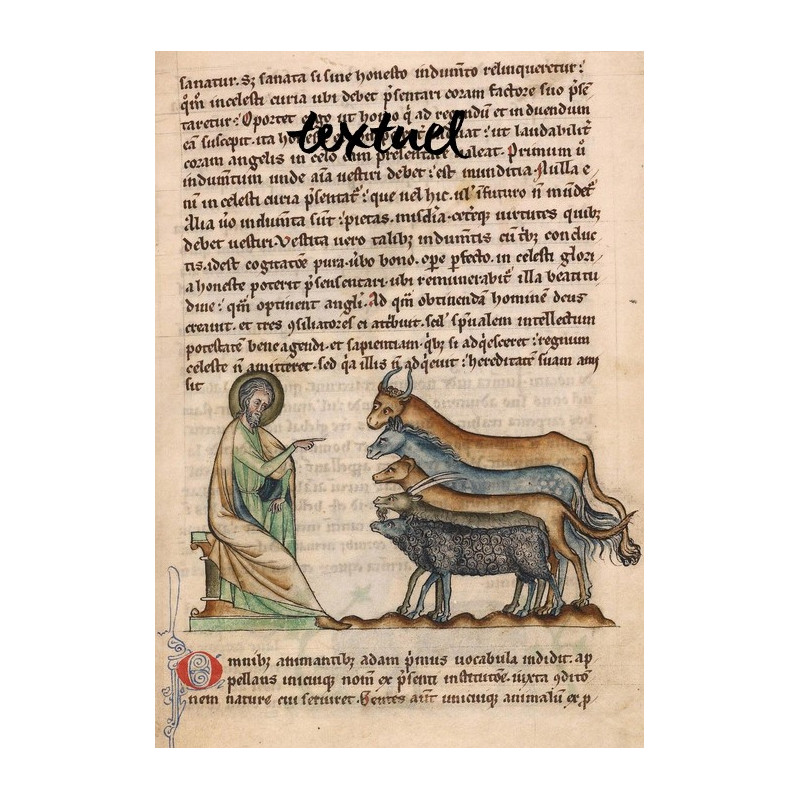 sanatur. Sꝫ sanata si sine honesto indum̄to relinqueretur:
q̄m̄ in celesti curia ubi debet p̄sentari coram factore suo p̄sē
taretur: Oportet ergo ut homo q̄ ad regendū et induendum
eā suscepit. ita ut laudabilit̄
textuel
coram angelis in celo ualeat. Primum ū
indum̄tum unde aīa uestiri debet: est munditia. Nulla e
nī in celesti curia p̄sentat̄: que uel hic. ul' ī futuro n̄ mūdet̄
Alia ūo indum̄ta sunt: pietas. misd̄ia. ceterq̄ uirtutes quibꝫ
debet uestiri. Vestita uero talibꝫ indum̄tis cū t̄bꝫ conduc
tis. idest cogitatōe pura. ūbo bono. ope p̄fecto. in celesti glori
a honeste poterit p̄sensentari. ubi remunerabit̄ illa beatitu
dine: q̄m optinent angl̄i. Ad q̄m obtinendā hominē deus
creauit. et tres ꝯsiliatores ei at̄buit. sed' sp̄ualem intellectum
potestatē bene agendi. et sapientiam. qꝫbꝫ si adq̇esceret: regnum
celeste n̄ amitteret. sed q̇a illis n̄ adq̇euit: hereditatē suam ami
sit
Omnibꝫ animantibꝫ adam p̄mus uocabula indidit. ap
pellans unicuiqꝫ nom̄ ex p̄senti institutōe. iuxta ꝯditō
nem nature cui seruiret. Gentes aūt unicuiqꝫ animaliū ex p